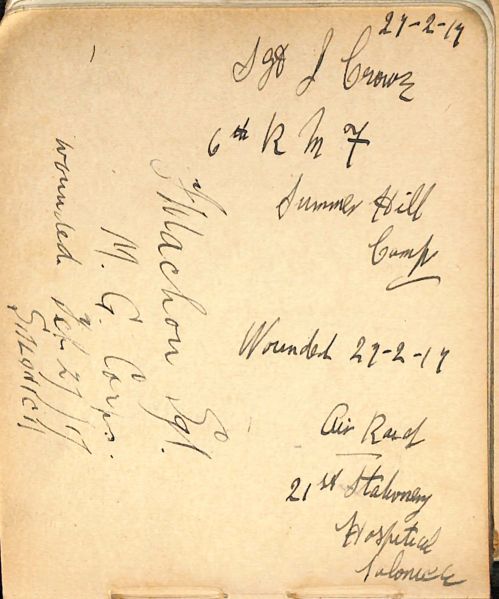 27-2-17
Sgt J Crowe
6th R M F
Summer Hill
Camp
Wounded 27-2-17
Air Raid
21st Stationery
Hospital
Salonica
J Machon Sgt.
M. G. Corps.
wounded Feb 27/17